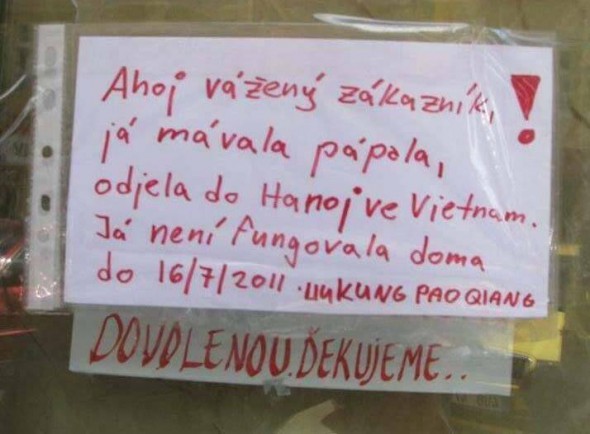 Ahoj vážený zákazník, !
já mávala pápala,
odjela do Hanoj ve Vietnam.
Já není fungovala doma
do 16/7/2011 · KUNG PAO QIANG
DOVOLENOU. ĎEKUJEME..